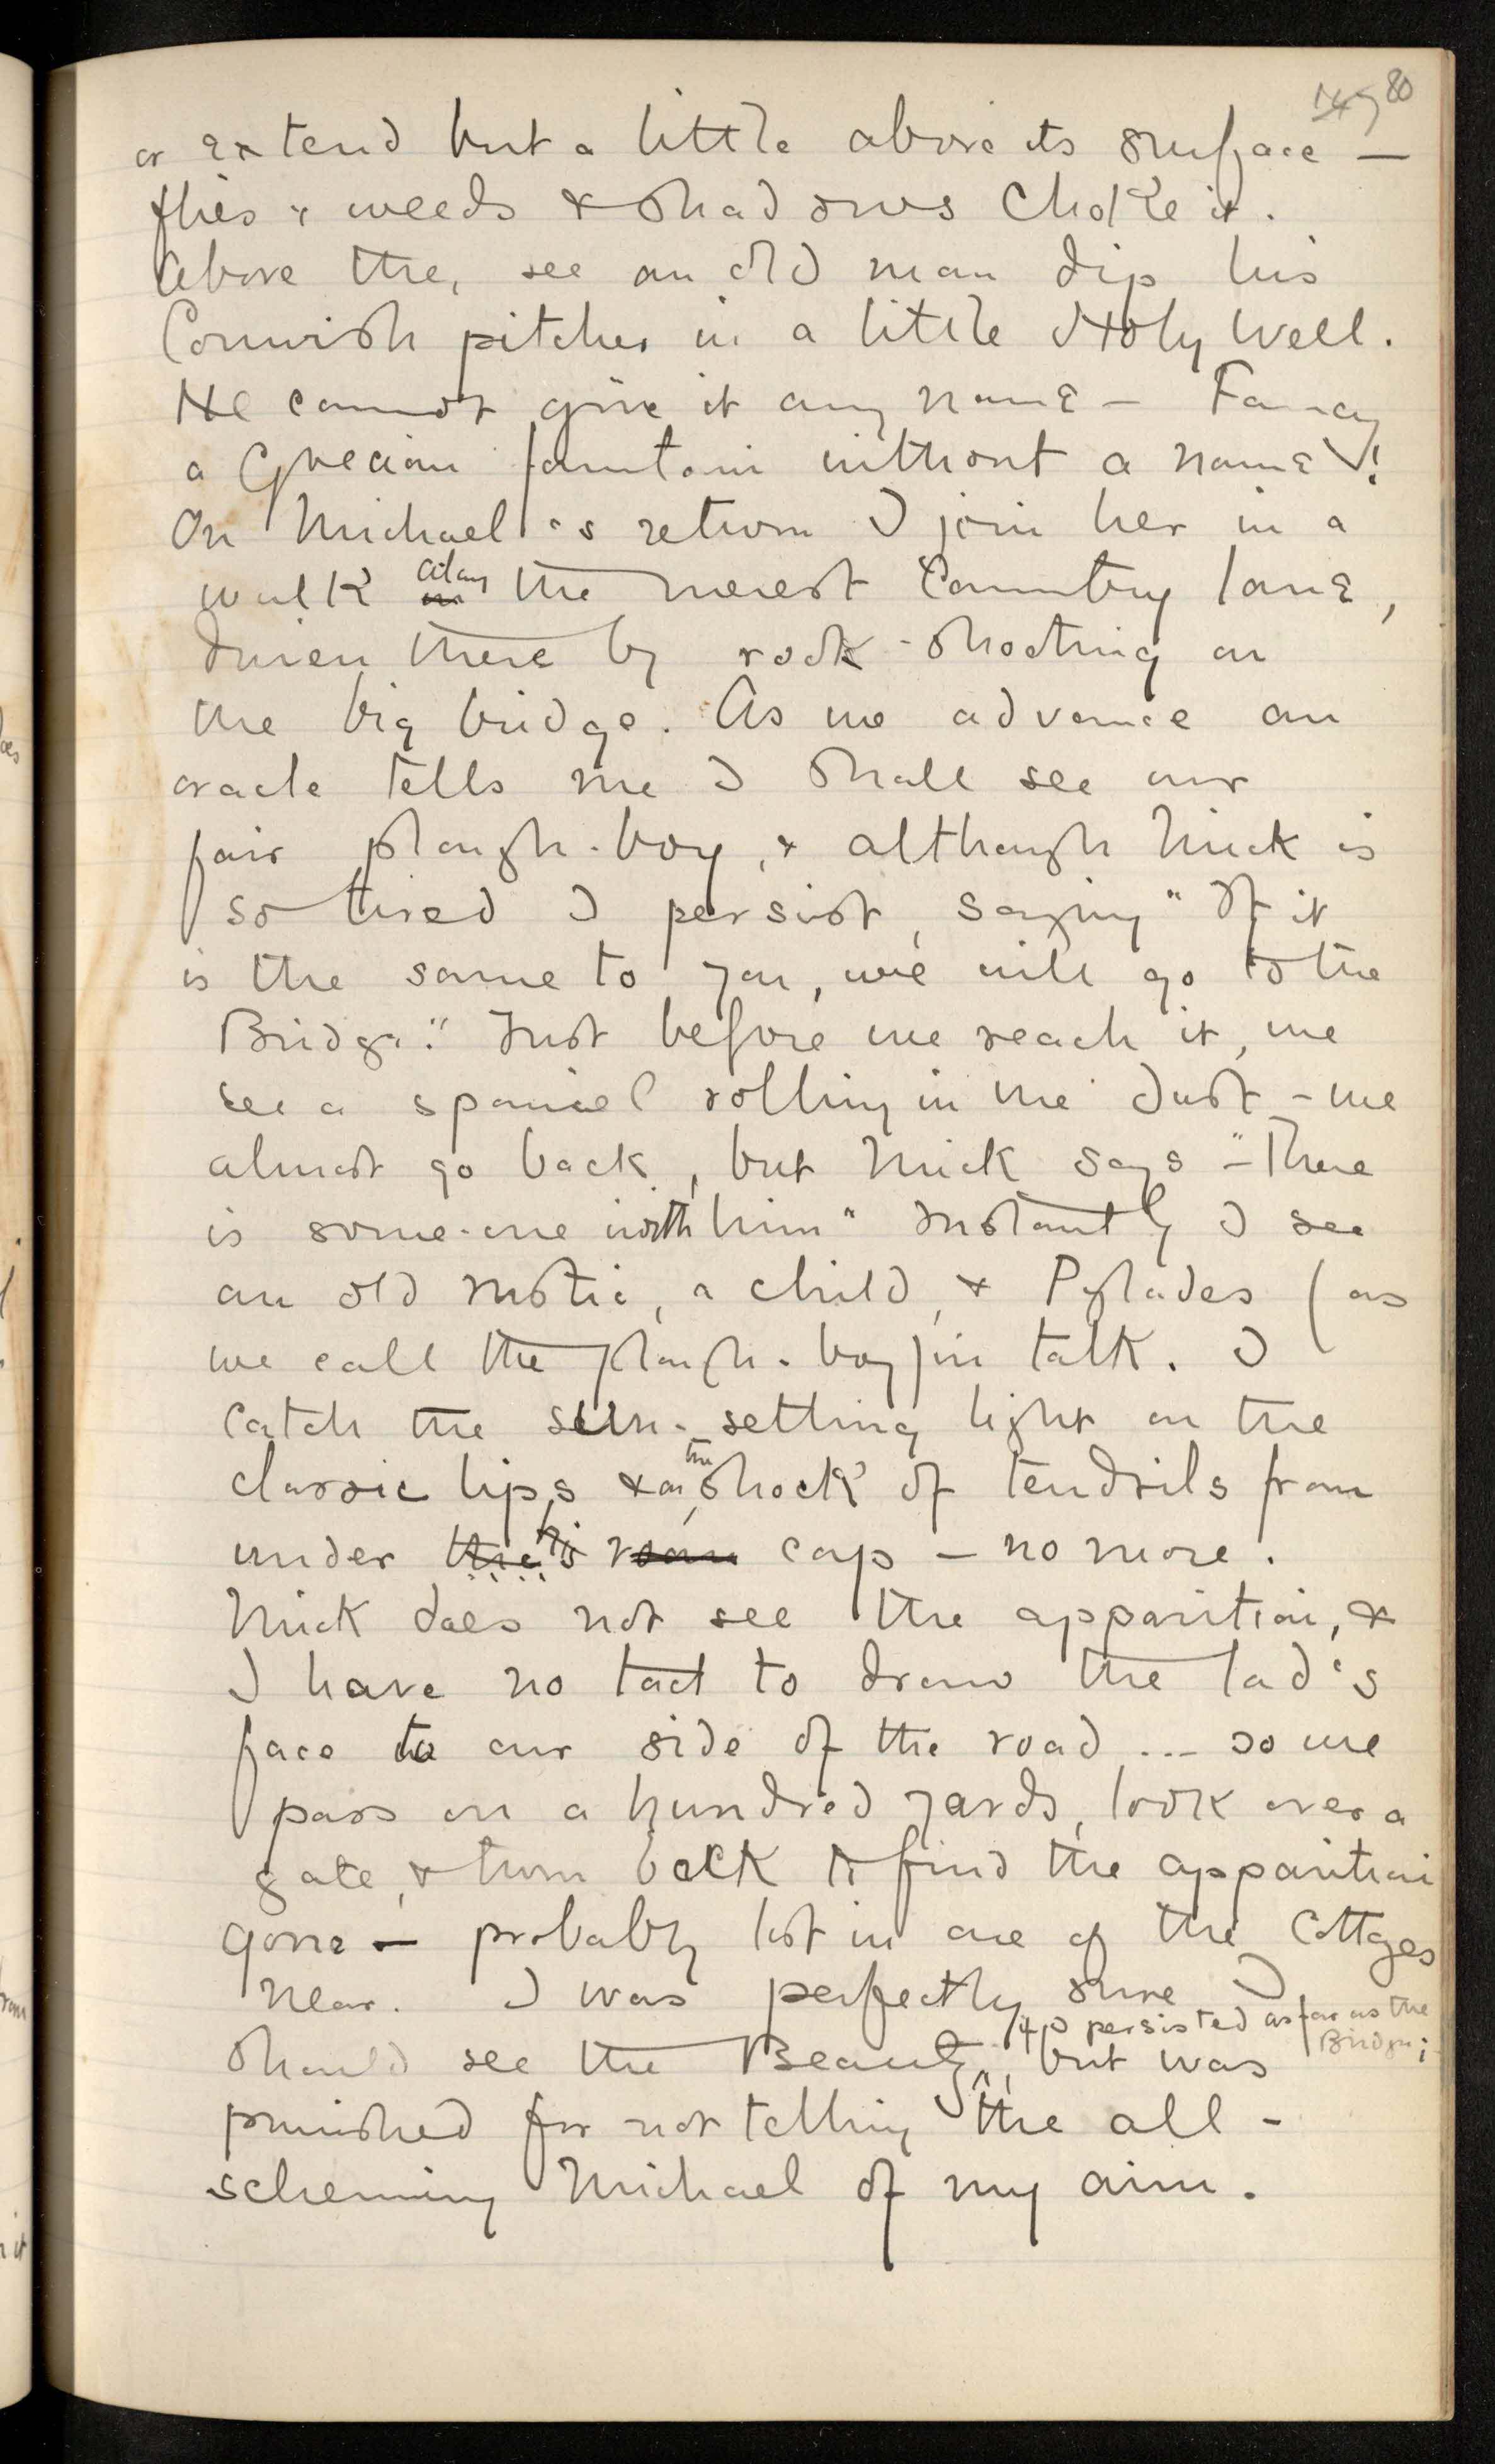 80
or extend but a little above its surface —
flies & weeds & shadows choke it.
Above the, see an old man dip his
Cornish pitcher in a little Holy Well.
He cannot give it any name — Fancy
a Grecian fountain without a name!
On Michael's return I join her in a
walk along the nearest Country lane,
driven there by rook-shooting on
the big bridge. As we advance an
oracle tells me I shall see our
fair plough-boy, & although Mick is
so tired I persist, saying "If it
is the same to you, we will go to the
Bridge." Just before we reach it, we
see a spaniel rolling in the dust – we
almost go back, but Mick says "There
is some-one with him" Instantly I see
an old rustic, a child, & Pylades (as
we call the plough-boy) in talk. I
catch the sun-setting light on the
classic lips & on the shock of tendrils from
under the his cap — no more.
Mick does not see the apparition, &
I have no tact to draw the lad's
face to our side of the road ... so we
pass on a hundred yards, look over a
gate, & turn back to find the apparition
gone — probably lost in one of the Cottages
near. I was perfectly sure I
& persisted as far as the
Bridge;
should see the Beauty, but was
punished for not telling the all-
scheming Michael of my aim.